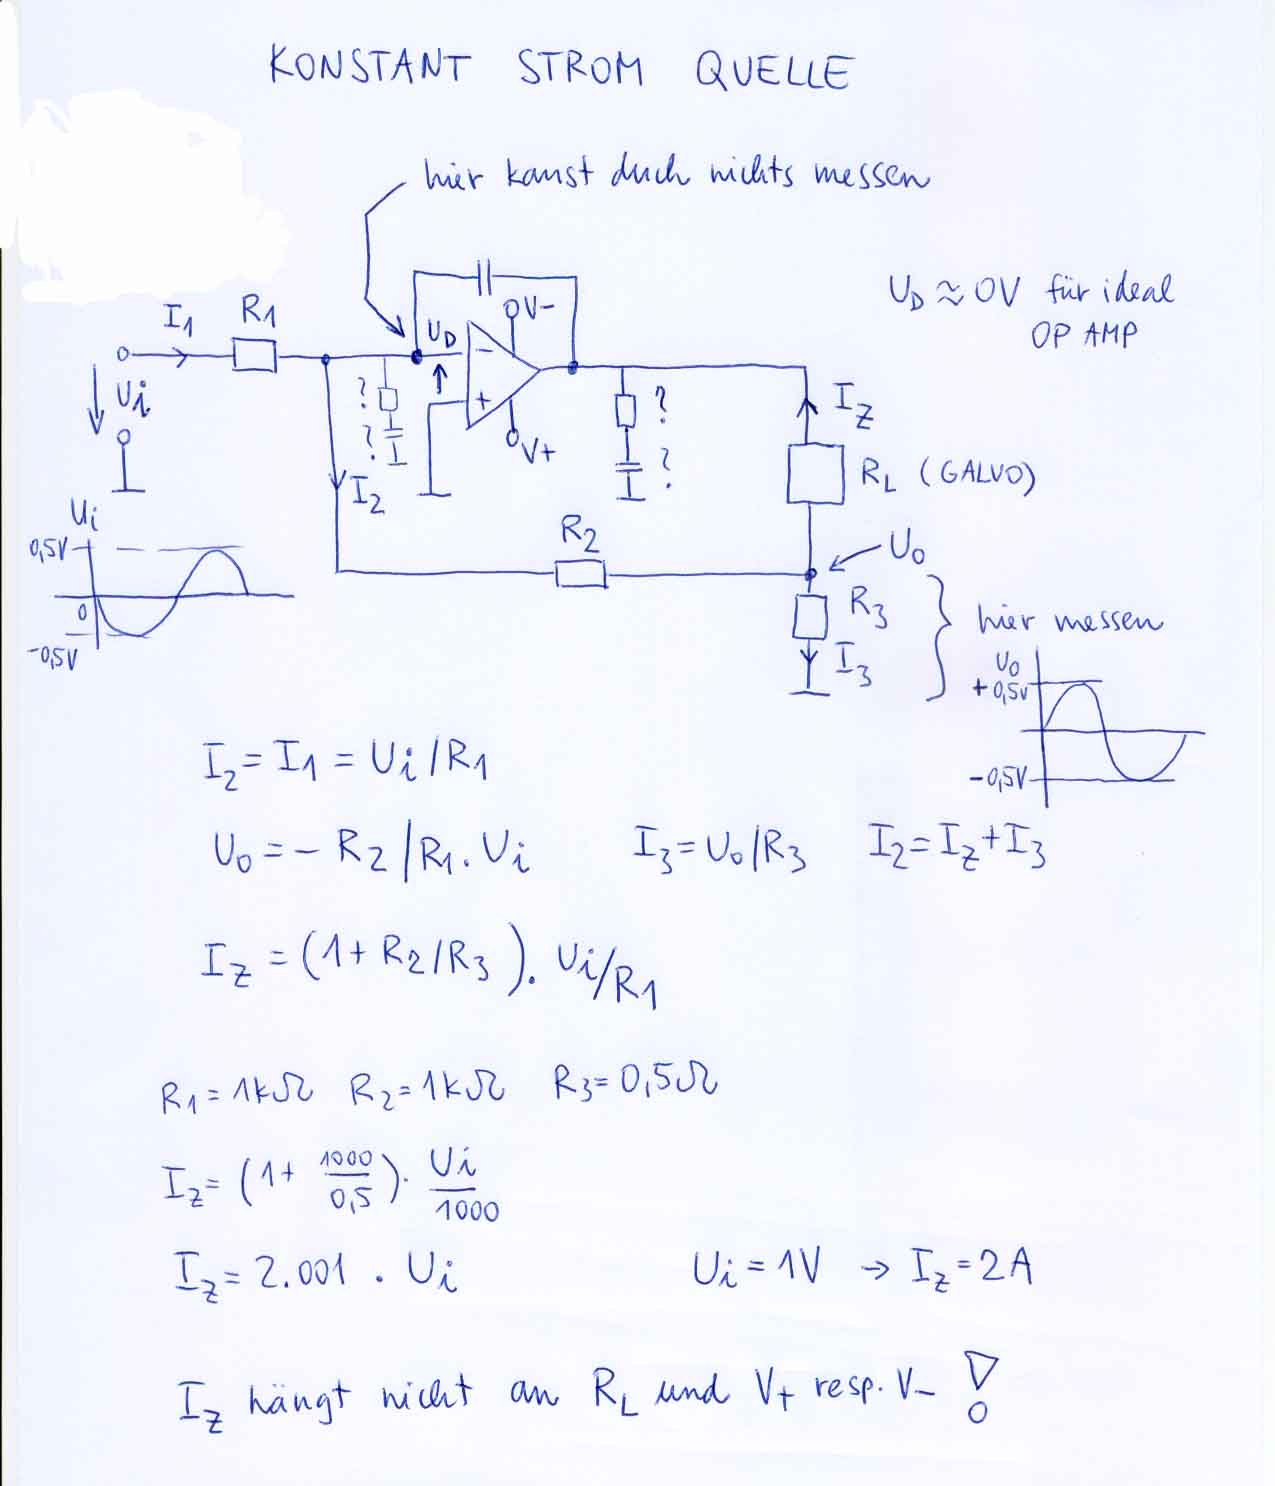 KONSTANT STROM QUELLE
hier kanst duch nichts messen
U_D ≈ 0V für ideal
OP AMP
I_1 R_1
U_D
V-
-
+
V+
U_i
? ?
? ?
I_2
I_Z
R_L (GALVO)
U_0
R_2
R_3
I_3
hier messen
U_i
0,5V
0
-0,5V
U_0
+0,5V
-0,5V
I_2 = I_1 = U_i / R_1
U_0 = - R_2 / R_1 . U_i I_3 = U_0 / R_3 I_2 = I_Z + I_3
I_Z = (1 + R_2 / R_3) . U_i / R_1
R_1 = 1kΩ R_2 = 1kΩ R_3 = 0,5Ω
I_Z = (1 + 1000/0,5) . U_i/1000
I_Z = 2.001 . U_i U_i = 1V → I_Z = 2A
I_Z hängt nicht an R_L und V+ resp. V- !